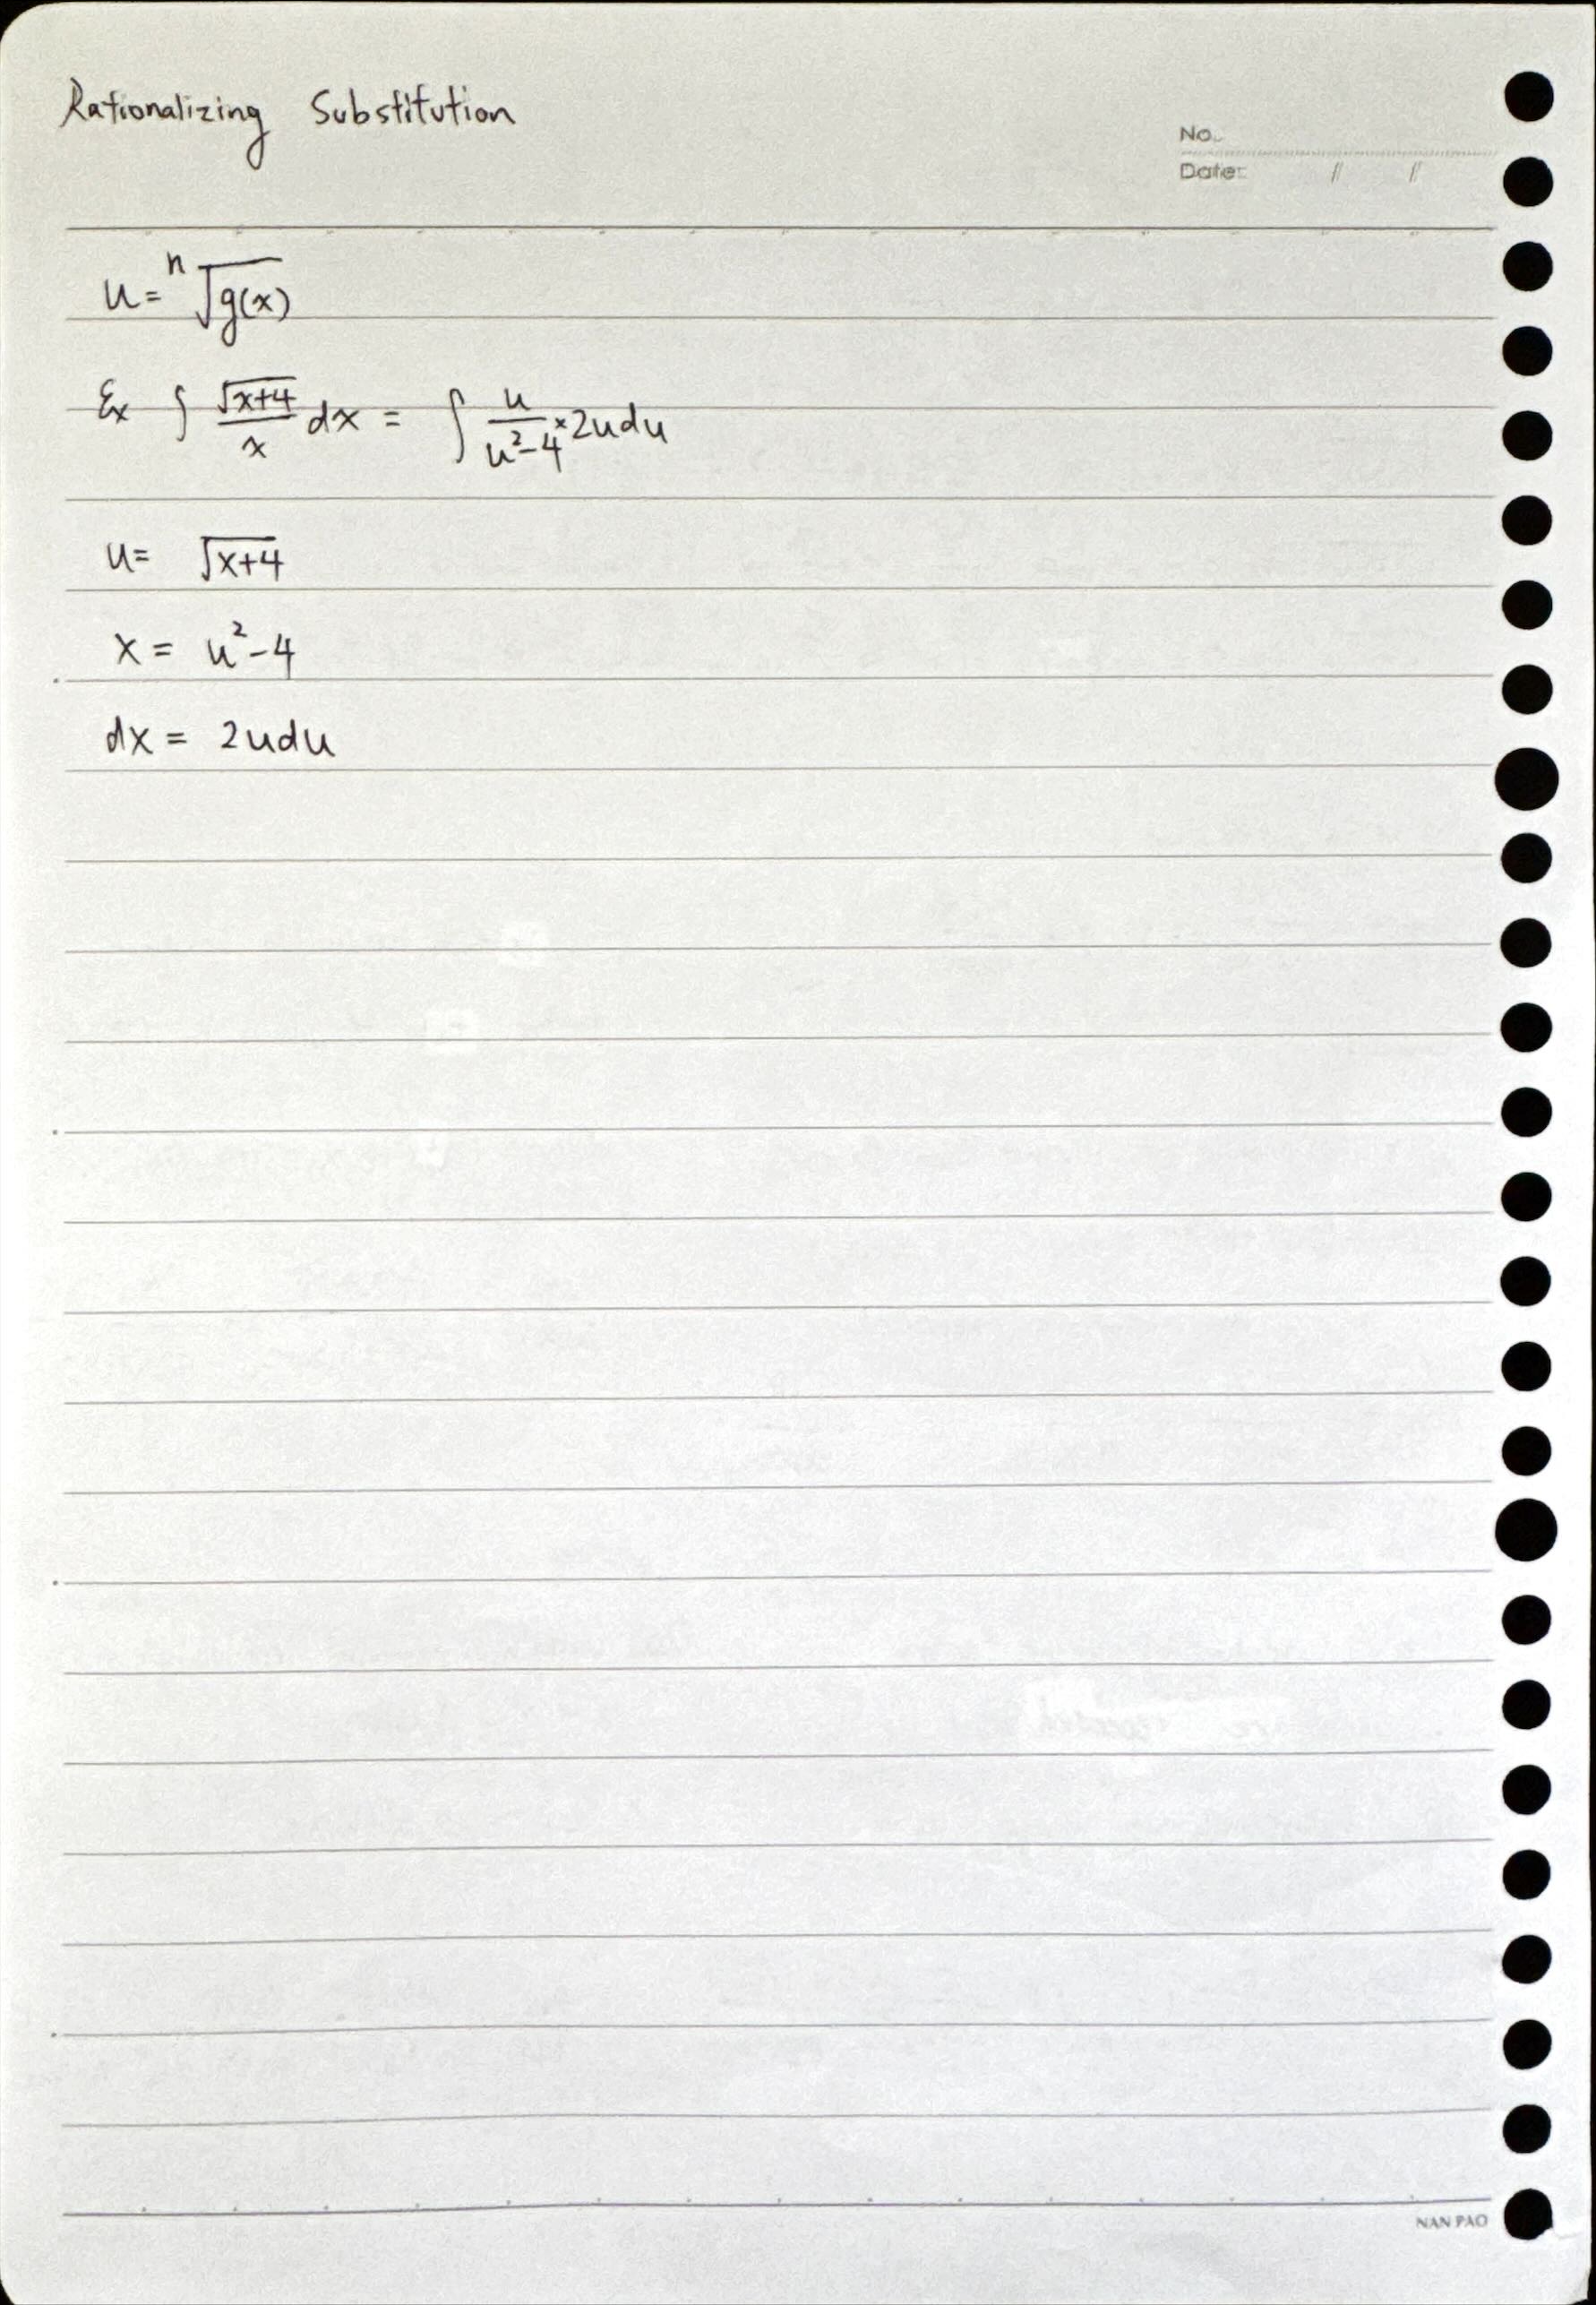 Rationalizing Substitution
No.
Date: / /
u = ⁿ√g(x)
Ex ∫ √x+4 / x dx = ∫ u / u²-4 × 2udu
u = √x+4
x = u²-4
dx = 2udu
NAN PAO